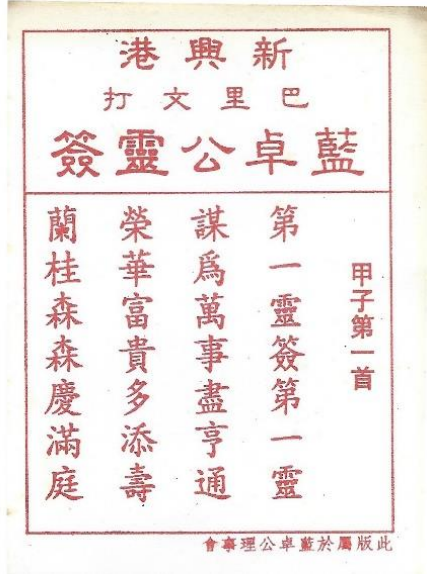 新興港
巴里文打
藍卓公靈簽
甲子第一首
第一靈簽第一靈
謀爲萬事盡亨通
榮華富貴多添壽
蘭桂森森慶滿庭
此版屬於藍卓公理事會